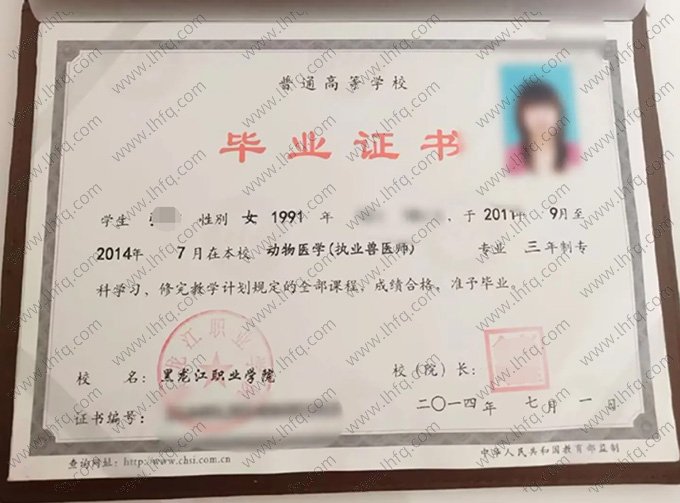 普通高等学校
毕业证书
学生 性别 女 1991 年 、于 2011年 9月至
2014年 7月在本校 动物医学(执业兽医师) 专业 三 年制专
科学习、修完教学计划规定的全部课程、成绩合格。准予毕业。
黑龙江职业学院
校 名：黑龙江职业学院
校（院）长：
证书编号：
二〇一四年 七月 一日
查询网址：http://www.chsi.com.cn
中华人民共和国教育部监制
www.lhfq.com